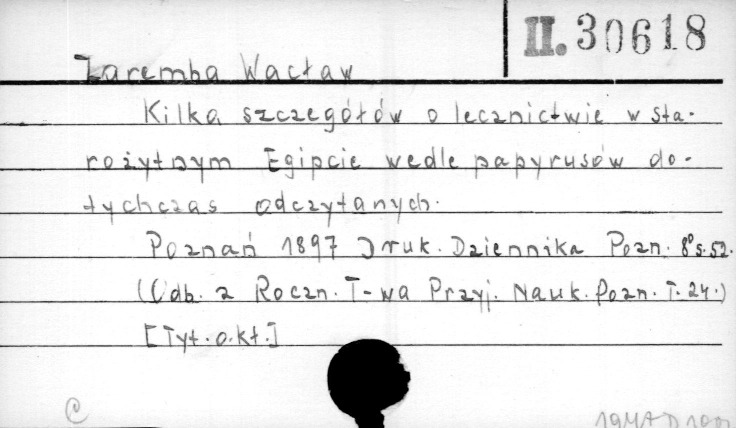 II. 30618
Zaremba Wacław
Kilka szczegółów o lecznictwie w sta-
rożytnym Egipcie wedle papyrusów do-
tychczas odczytanych.
Poznań 1897 Druk. Dziennika Pozn. 8° s. 52.
(Odb. z Roczn. T-wa Przyj. Nauk. Pozn. T. 24.)
[Tyt. o.kł.]
C